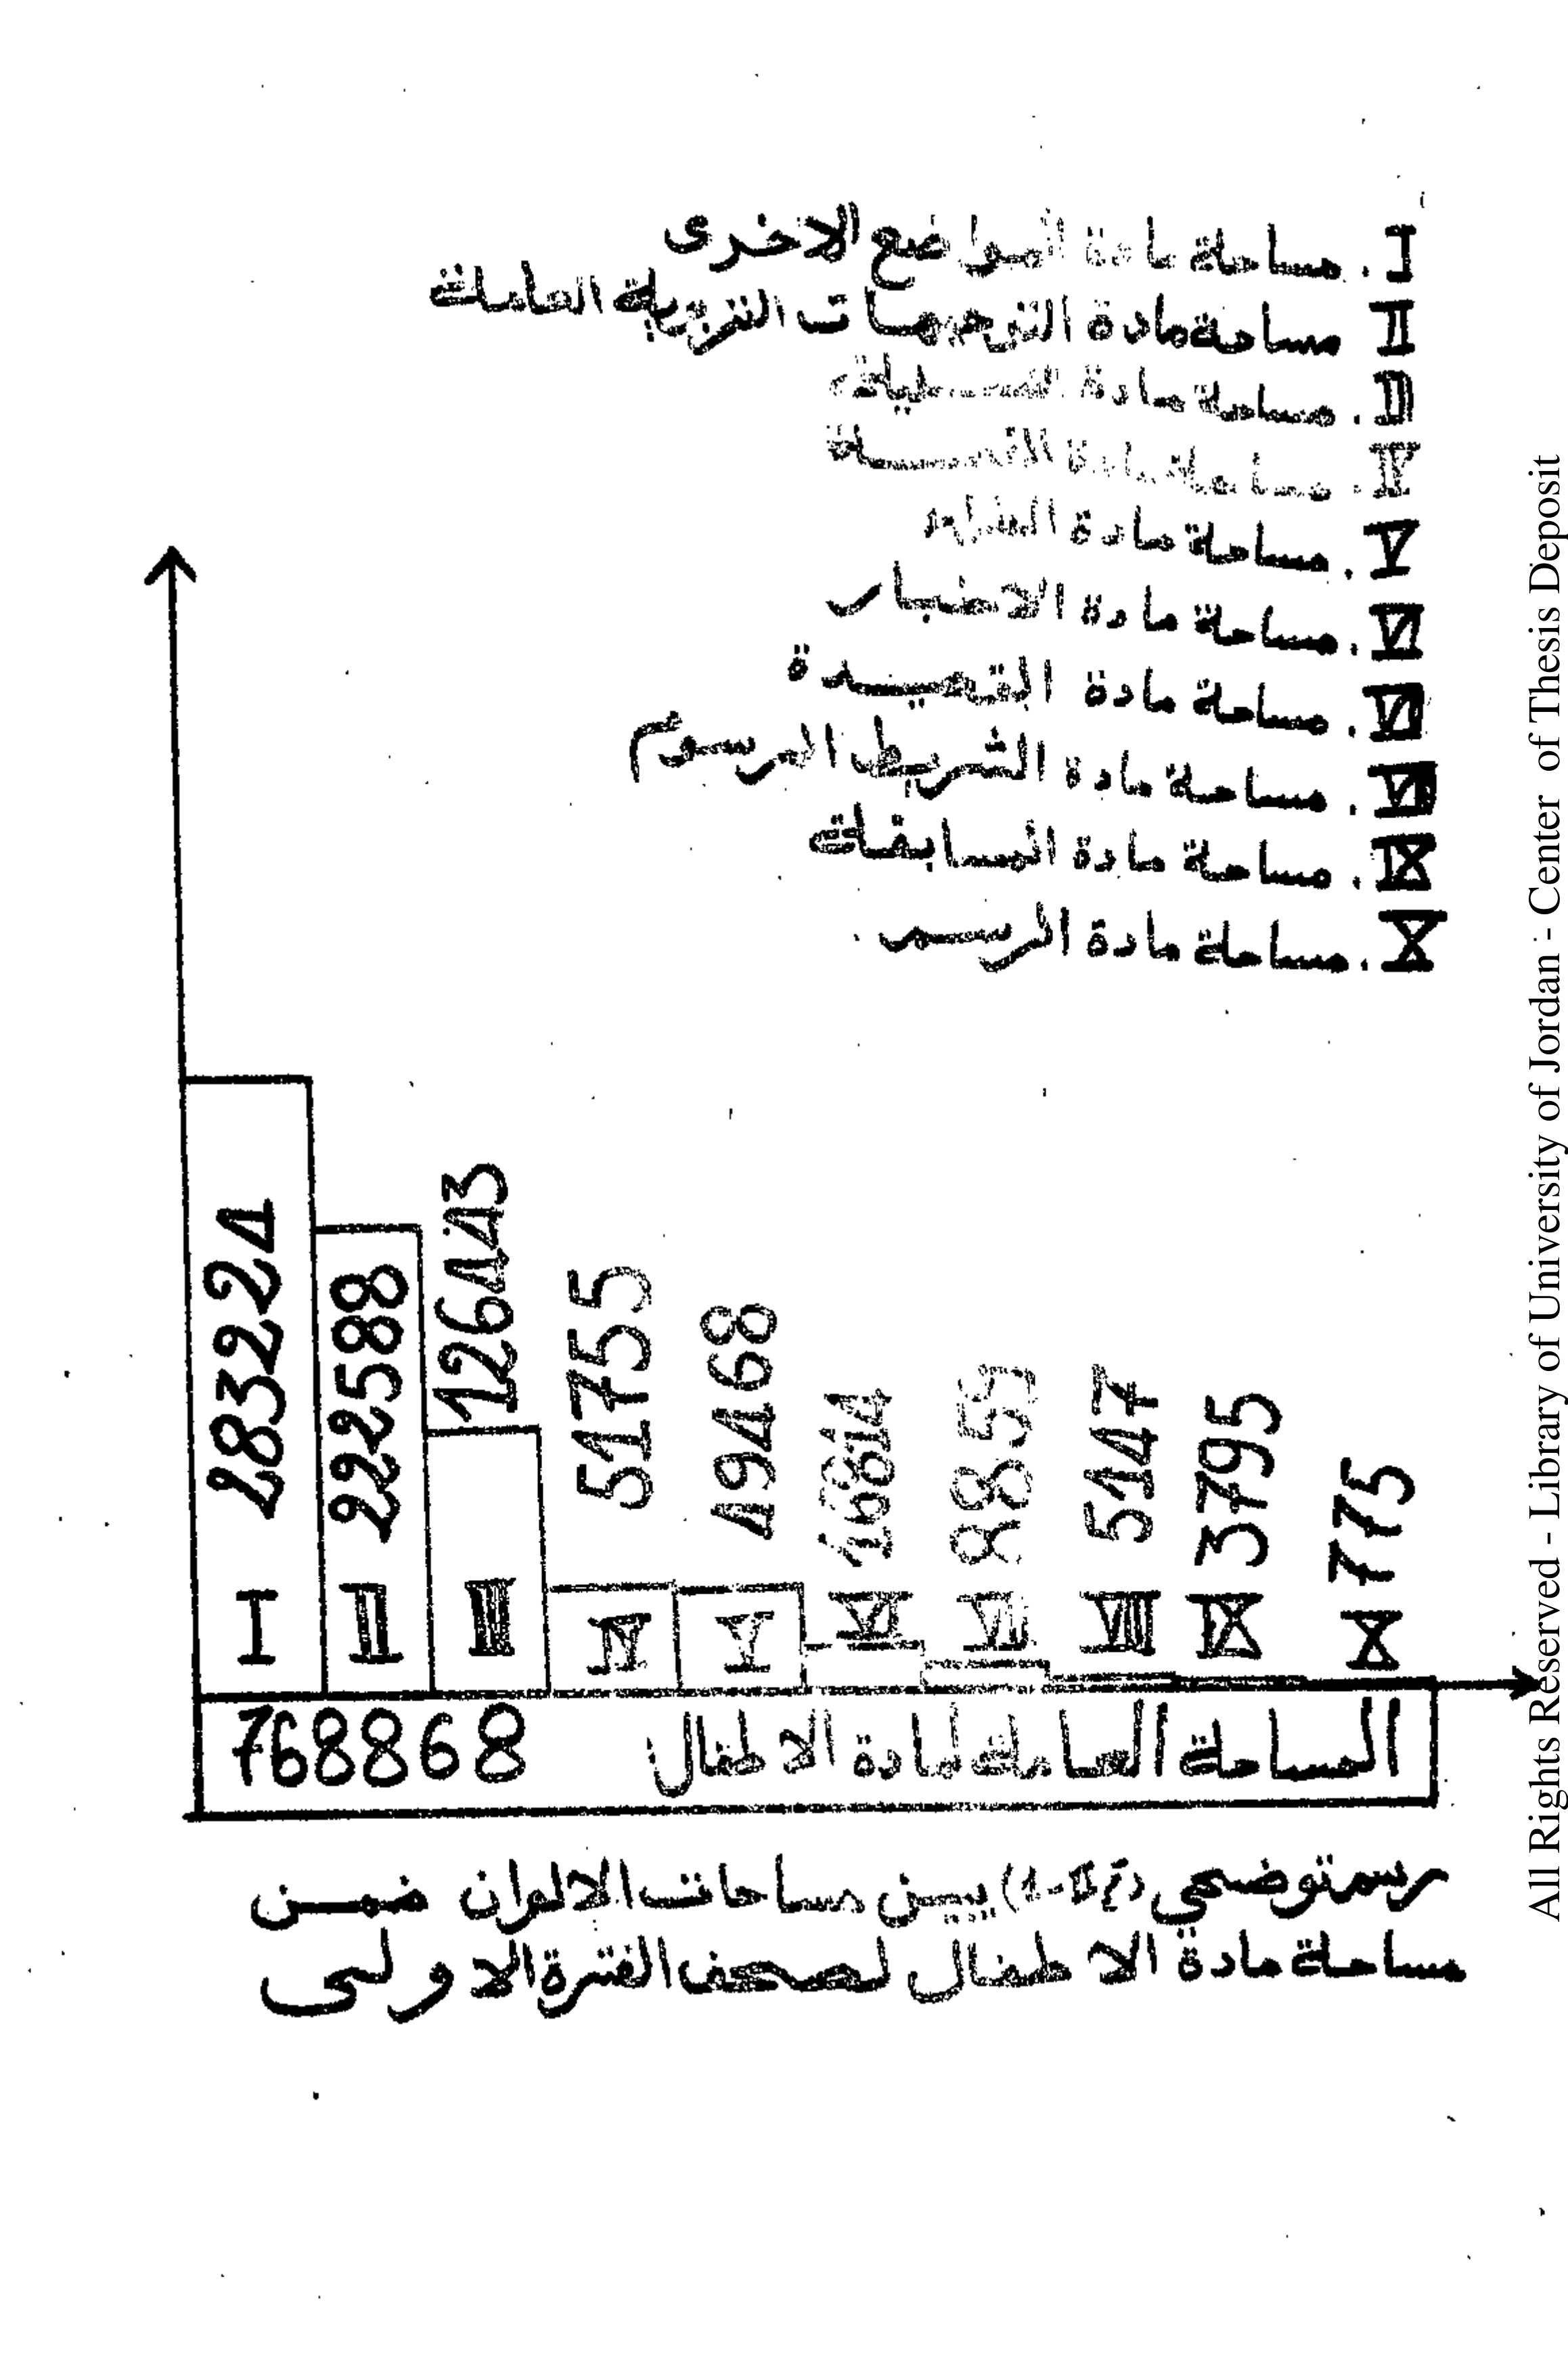 I . مساحة مادة المواضع الاخرى
II مساحة مادة التوجيهات التربوية العامة
III . مساحة مادة
IV . مساحة مادة القصة
V . مساحة مادة
VI . مساحة مادة الاخبار
VII . مساحة مادة القصيدة
VIII . مساحة مادة الشريط المرسوم
IX . مساحة مادة المسابقة
X . مساحة مادة الرسم .
I 283224
II 222588
III 126443
IV 51755
V 49468
VI 16814
VII 8855
VIII 5147
IX 3795
X 775
المساحة العامة لمادة الاطفال 768868
رسم توضحي يبين مساحات الالوان ضمن
مساحة مادة الاطفال لصحف الفترة الاولى
All Rights Reserved - Library of University of Jordan - Center of Thesis Deposit